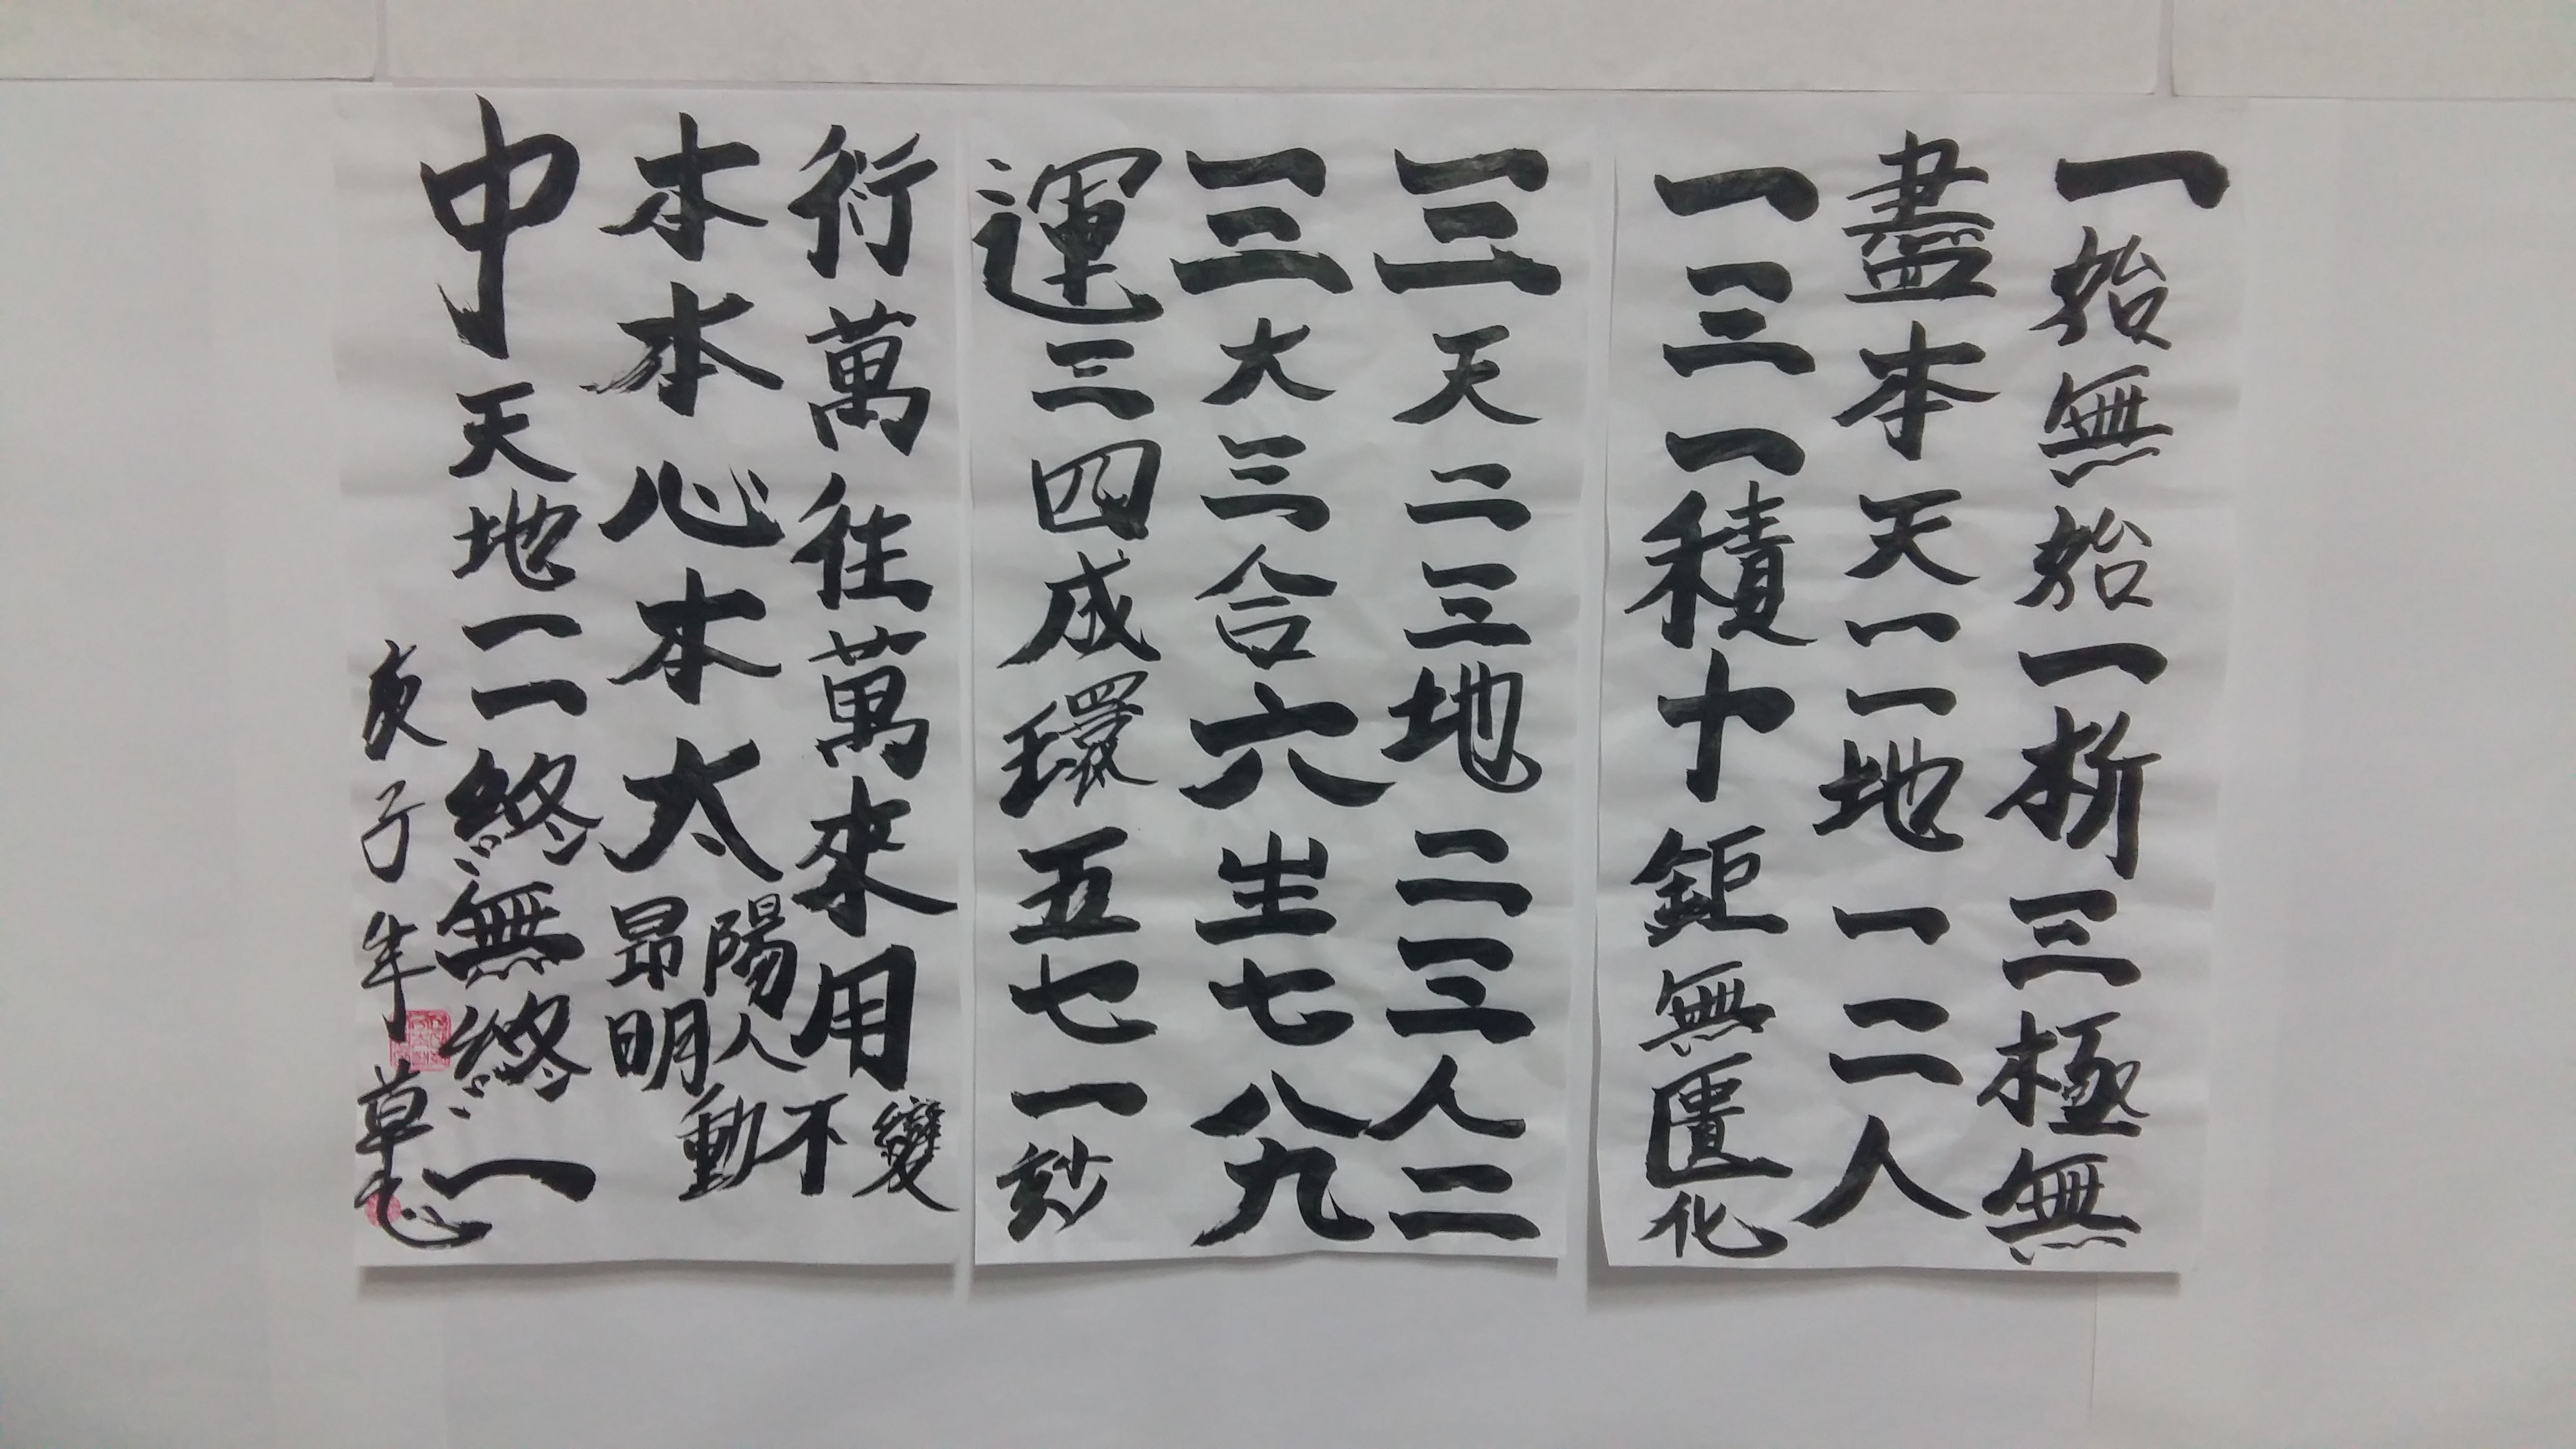 一始無始一析三極無
盡本天一一地一二人
一三一積十鉅無匱化
三天二三地二三人二
三大三合六生七八九
運三四成環五七一玅
衍萬往萬來用變不動
本本心本太陽昂明人
中天地一一終無終一
庚子年 草心